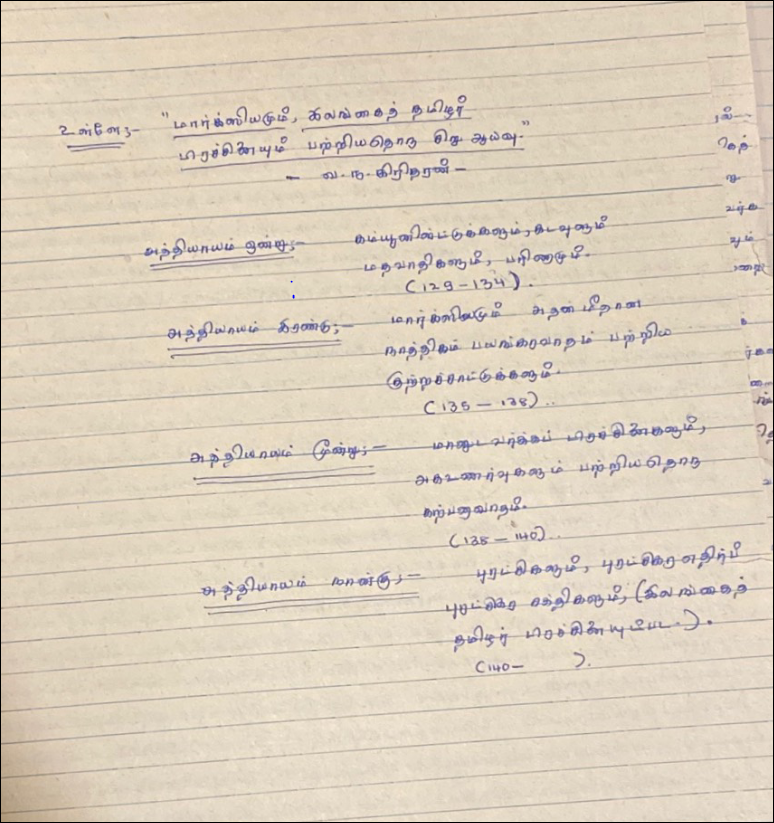 உள்ளே;- "மார்க்ஸியமும், இலங்கைத் தமிழர்
பிரச்சினையும் பற்றியதொரு சிறு ஆய்வு."
- வ.ந.கிரிதரன் -
அத்தியாயம் ஒன்று;- கம்யூனிஸ்ட்டுக்களும், கடவுளும்
மதவாதிகளும், பரிணாமமும்.
(129-134).
அத்தியாயம் இரண்டு;- மார்க்ஸியமும் அதன் மீதான
நாத்திகம் பயங்கரவாதம் பற்றிய
குற்றச்சாட்டுக்களும்.
(135-138)..
அத்தியாயம் மூன்று;- மானுட வர்க்கப் பிரச்சினைகளும்,
அகஉணர்வுகளும் பற்றியதொரு
கற்பனாவாதம்.
(138-140)..
அத்தியாயம் நான்கு;- புரட்சிகளும், புரட்சிகர எதிர்ப்
புரட்சிகர சக்திகளும், (இலங்கைத்
தமிழர் பிரச்சினையுட்பட.).
(140- ).